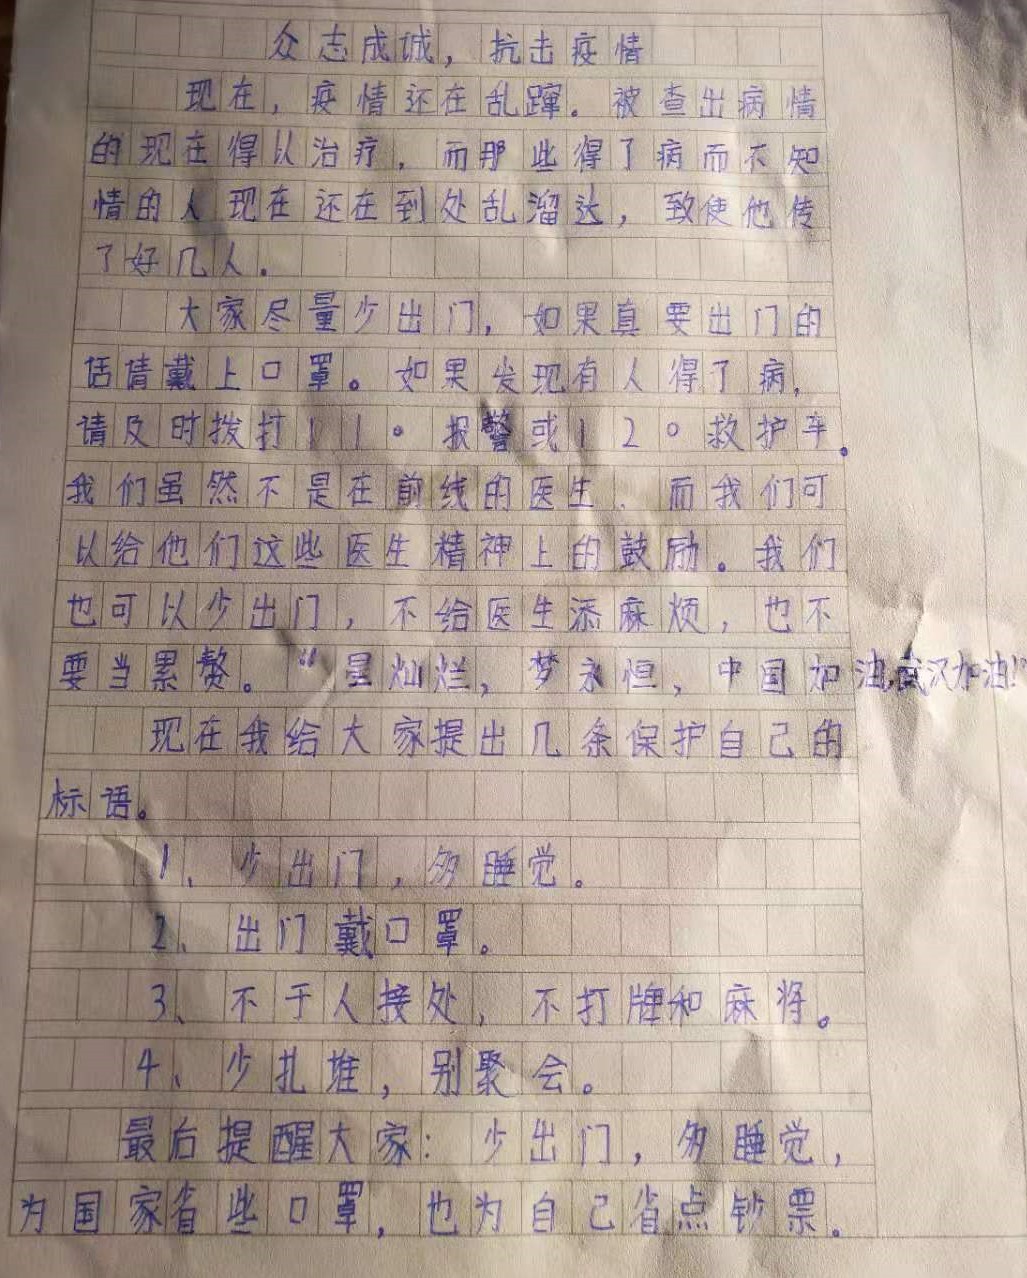 众志成诚，抗击疫情
现在，疫情还在乱蹿。被查出病情
的现在得以治疗，而那些得了病而不知
情的人现在还在到处乱溜达，致使他传
了好几人。
大家尽量少出门，如果真要出门的
话请戴上口罩。如果发现有人得了病，
请及时拨打110报警或120救护车。
我们虽然不是在前线的医生，而我们可
以给他们这些医生精神上的鼓励。我们
也可以少出门，不给医生添麻烦，也不
要当累赘。“星灿烂，梦永恒，中国加油,武汉加油!”
现在我给大家提出几条保护自己的
标语。
1、少出门，多睡觉。
2、出门戴口罩。
3、不于人接处，不打牌和麻将。
4、少扎堆，别聚会。
最后提醒大家：少出门，多睡觉，
为国家省些口罩，也为自己省点钞票。